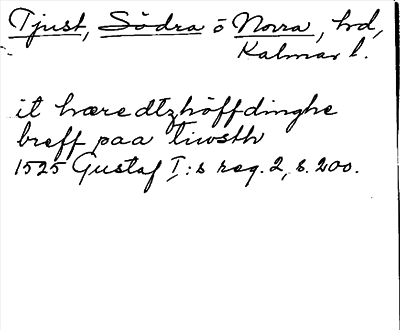 Tjust, Södra o Norra, hd,
Kalmar l.
it hæredtzhöffdinghe
breff paa tiwsth
1525 Gustaf I:s reg. 2, s. 200.